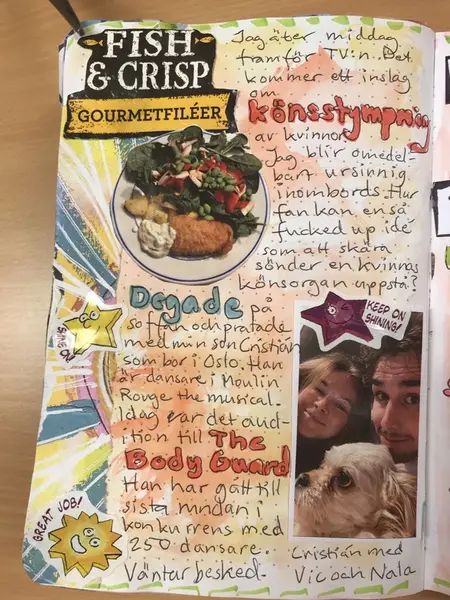 FISH
& CRISP
GOURMETFILÉER
Jag äter middag
framför TV:n. Det
kommer ett inslag
om
könsstympning
av kvinnor.
Jag blir omedel-
bart ursinnig
inombords. Hur
fan kan en så
fucked up idé
som att skära
sönder en kvinnas
könsorgan uppstå?
Degade på
soffan och pratade
med min son Cristián
som bor i Oslo. Han
är dansare i Moulin
Rouge the musical.
Idag var det aud-
ition till The
Body Guard
Han har gått till
sista rundan i
konkurrens med
250 dansare.
Väntar besked.
KEEP ON
SHINING!
GREAT JOB!
Cristián med
Vic och Nala